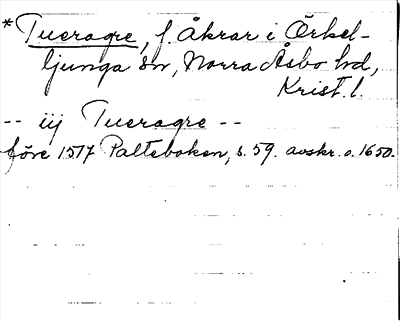 * Tueragre, f. Åkrar i Örkel-
ljunga sn, Norra Åsbo hd,
Krist. l.
-- iij Tueragre --
före 1517 Palteboken, s. 59. avskr. o. 1650.